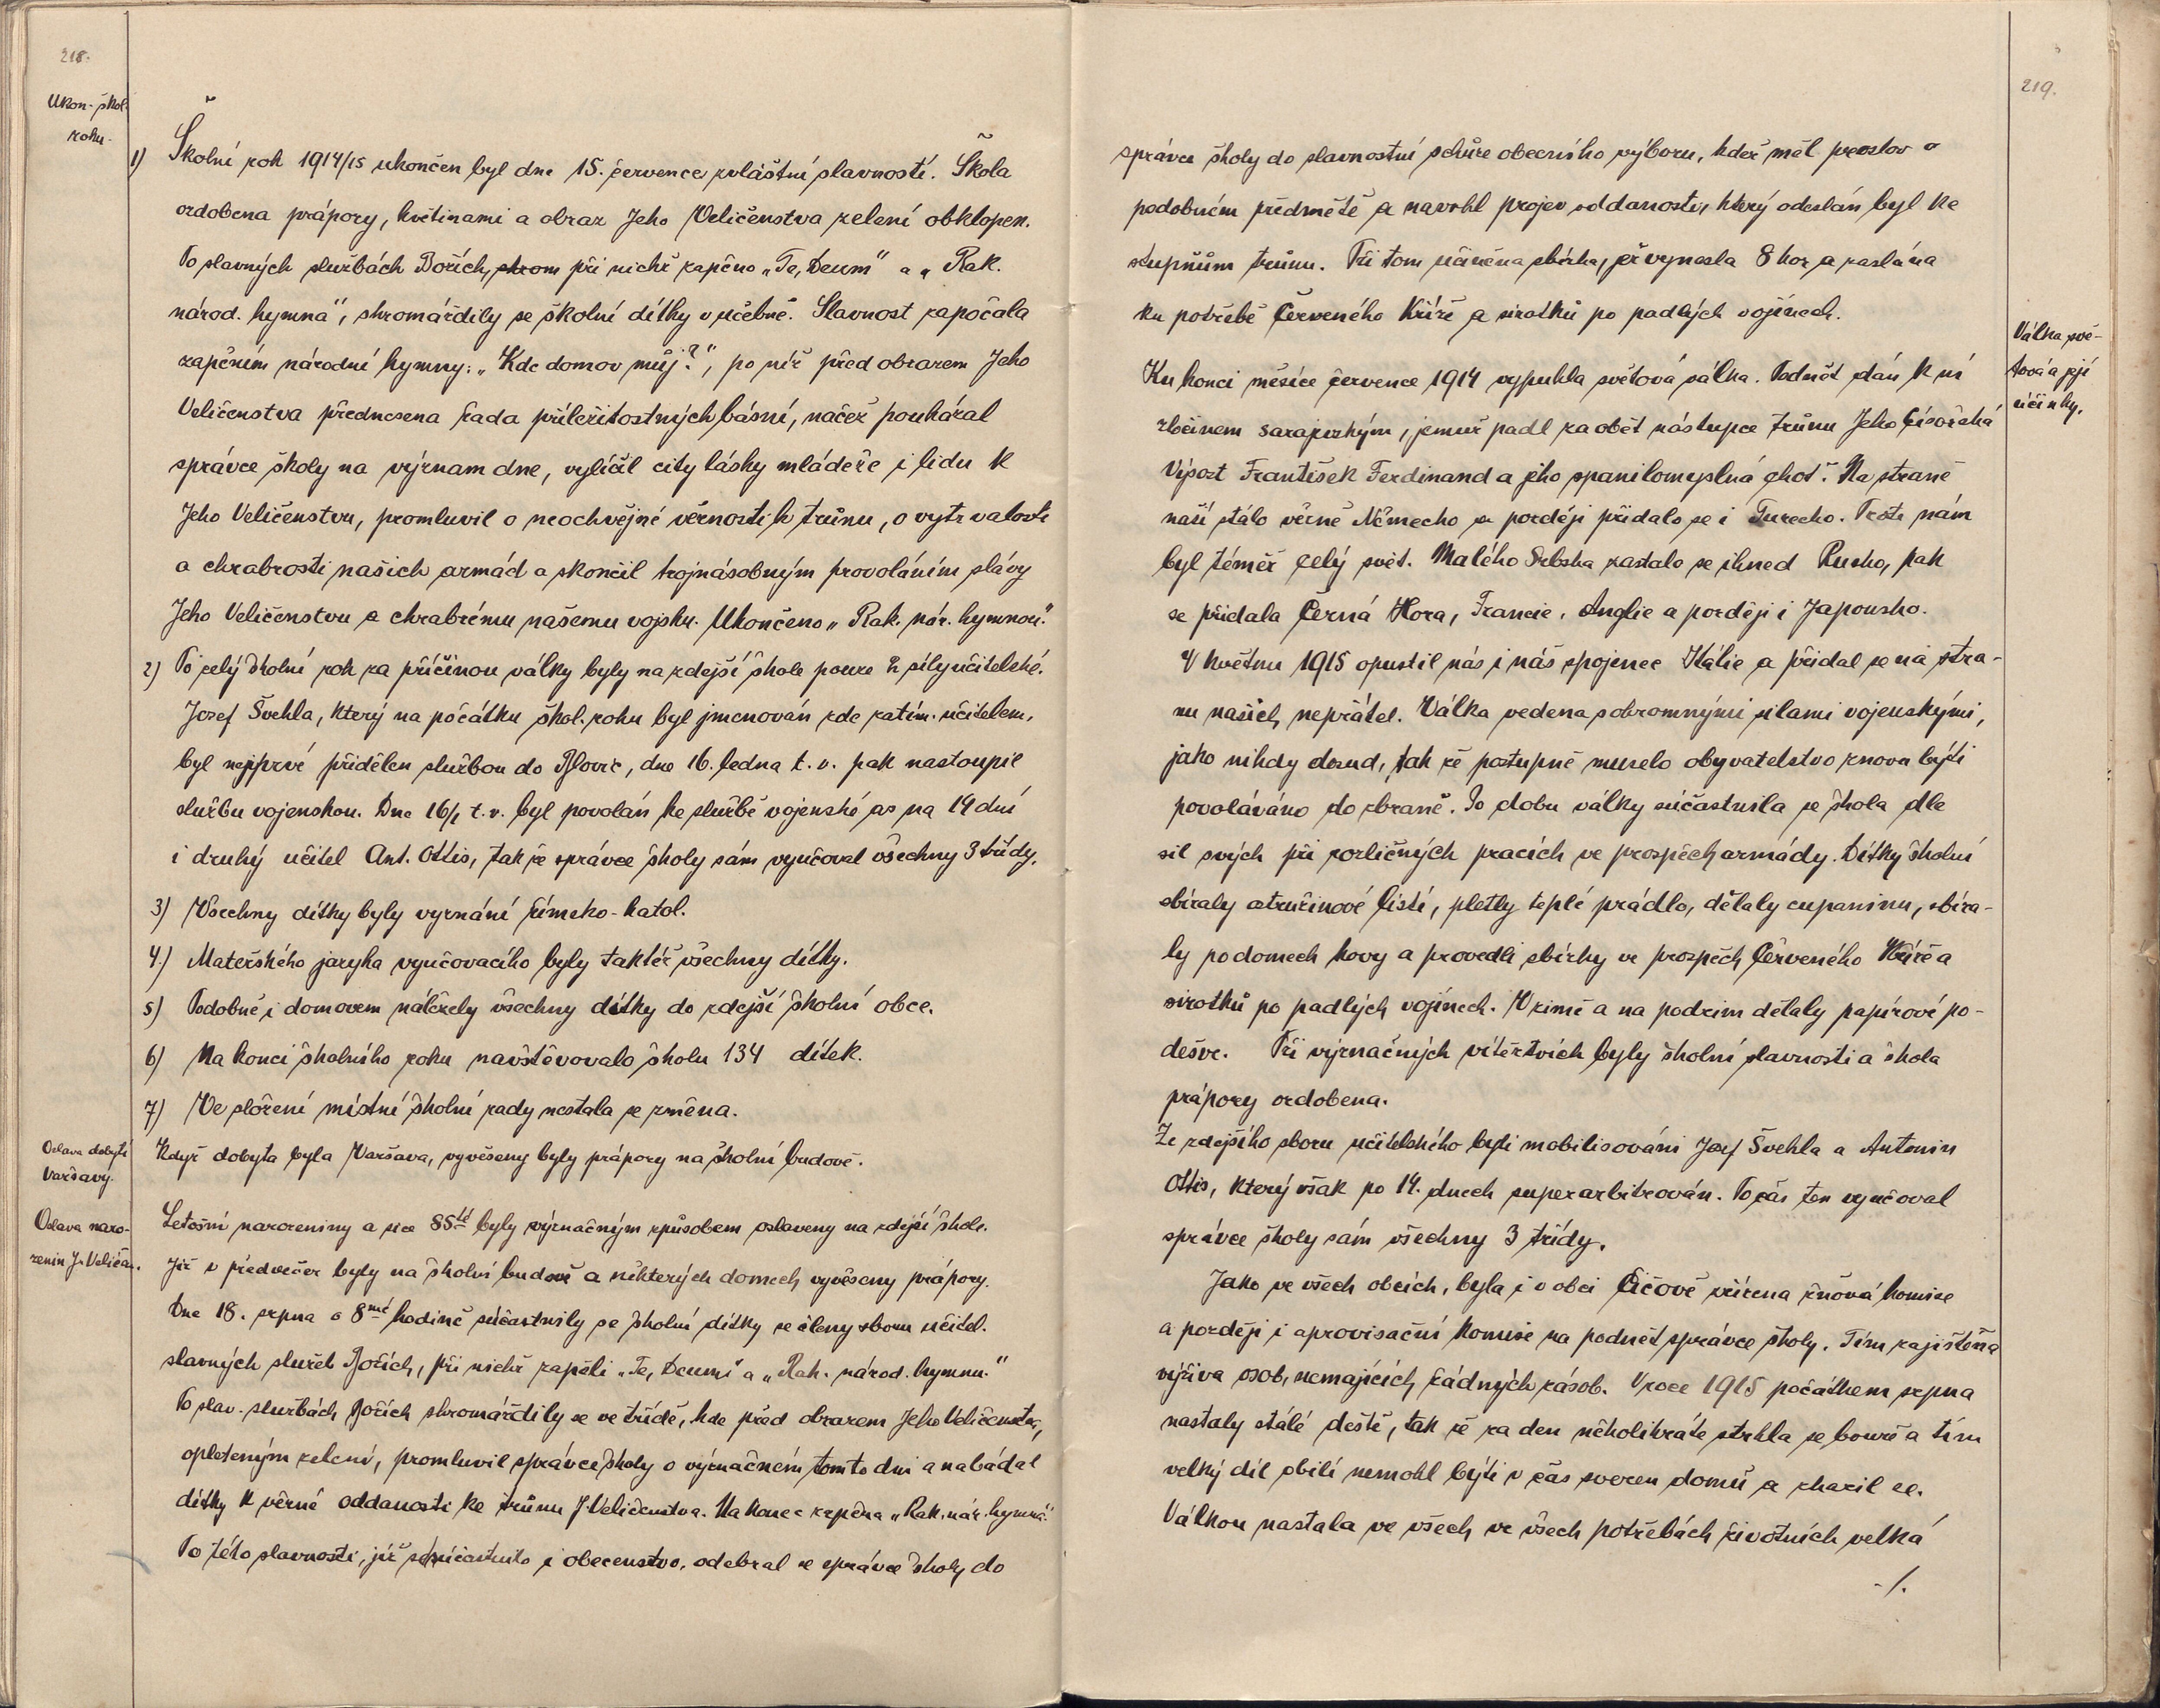 218.
Ukon. škol.
roku.
1) Školní rok 1914/15 ukončen byl dne 15. července zvláštní slavností. Škola
ozdobena prápory, květinami a obraz Jeho Veličenstva zelení obklopen.
Po slavných službách Božích, shrom při nichž zapěno „Te, Deum" a „Rak.
národ. hymna", shromáždily se školní dítky v učebně. Slavnost započala
zapěním národní hymny: „Kde domov můj?", po níž před obrazem Jeho
Veličenstva přednesena řada příležitostných básní, načež poukázal
správce školy na význam dne, vylíčil city lásky mládeže i lidu k
Jeho Veličenstvu, promluvil o neochvějné věrnosti k trůnu, o vytrvalosti
a chrabrosti našich armád a skončil trojnásobným provoláním slávy
Jeho Veličenstvu a chrabrému našemu vojsku. Ukončeno „Rak. nár. hymnou."
2) Po celý školní rok za příčinou války byly na zdejší škole pouze 2 síly učitelské.
Josef Švehla, který na počátku škol. roku byl jmenován zde zatím. učitelem,
byl nejprvé přidělen službou do Blovic, dne 16. ledna t. r. pak nastoupil
službu vojenskou. Dne 16/1 t. r. byl povolán ke službě vojenské as na 14 dní
i druhý učitel Ant. Ottis, tak že správce školy sám vyučoval všechny 3 třídy.
3) Všechny dítky byly vyznání římsko-katol.
4.) Mateřského jazyka vyučovacího byly taktéž všechny dítky.
5) Podobně i domovem náležely všechny dítky do zdejší školní obce.
6) Na konci školního roku navštěvovalo školu 134 dítek.
7) Ve složení místní školní rady nestala se změna.
Oslava dobytí
Varšavy.
Když dobyta byla Varšava, vyvěšeny byly prápory na školní budově.
Oslava naro-
zenin J. Veličen.
Letošní narozeniny a sice 85té byly význačným způsobem oslaveny na zdejší škole.
Již v předvečer byly na školní budově a některých domech vyvěšeny prápory.
Dne 18. srpna o 8mé hodině súčastnily se školní dítky se členy sboru učitel.
slavných služeb Božích, při nichž zapěli „Te, Deum" a „Rak. národ. hymnu."
Po slav. službách Božích shromáždily se ve třídě, kde před obrazem Jeho Veličenstva,
opleteným zelení, promluvil správce školy o význačném tomto dni a nabádal
dítky k věrné oddanosti ke trůnu J. Veličenstva. Na konec zapěna „Rak. nár. hymna."
Po této slavnosti, již se súčastnilo i obecenstvo, odebral se správce školy do
219.
správce školy do slavnostní schůze obecního výboru, kdež měl proslov o
podobném předmětě a navrhl projev oddanosti, který odeslán byl ke
stupňům trůnu. Při tom učiněna sbírka, jež vynesla 8 kor a zaslána
ku potřebě Červeného Kříže a sirotků po padlých vojínech.
Válka svě-
tová a její
účinky.
Ku konci měsíce července 1914 vypukla světová válka. Podnět dán k ní
zločinem sarajevským, jemuž padl za oběť nástupce trůnu Jeho Císařská
Výsost František Ferdinand a jeho spanilomyslná choť. Na straně
naší stálo věrně Německo a později přidalo se i Turecko. Proti nám
byl téměř celý svět. Malého Srbska zastalo se ihned Rusko, pak
se přidala Černá Hora, Francie, Anglie a později i Japonsko.
V květnu 1915 opustil nás i náš spojenec Itálie a přidal se na stra-
nu našich nepřátel. Válka vedena s obromnými silami vojenskými,
jako nikdy dosud, tak že postupně muselo obyvatelstvo znova býti
povoláváno do zbraně. Po dobu války súčastnila se škola dle
sil svých při rozličných pracích ve prospěch armády. Dítky školní
sbíraly ostružinové listí, pletly teplé prádlo, dělaly cupaninu, sbíra-
ly po domech kovy a provedli sbírky ve prospěch Červeného Kříže a
sirotků po padlých vojínech. V zimě a na podzim dělaly papírové po-
dešve. Při význačných vítězstvích byly školní slavnosti a škola
prápory ozdobena.
Ze zdejšího sboru učitelského byli mobilisováni Josef Švehla a Antonin
Ottis, který však po 14. dnech superarbitrován. Po čas ten vyučoval
správce školy sám všechny 3 třídy.
Jako ve všech obcích, byla i v obci Čičově zřízena žňová komise
a později i aprovisační komise na podnět správce školy. Tím zajištěna
výživa osob, nemajících žádných zásob. V roce 1915 počátkem srpna
nastaly stálé deště, tak že za den několikráte strhla se bouře a tím
velký díl obilí nemohl býti v čas svezen domů a zkazil se.
Válkou nastala ve všech ve všech potřebách životních velká
-/.